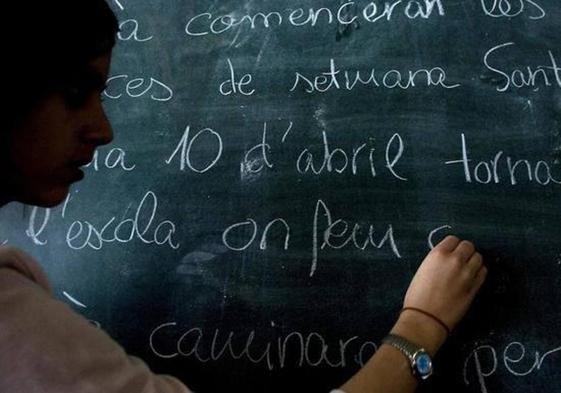 à començeran les
ces de setmana Sant
ia 10 d'abril torna
l'escóla on feu c
caminara per